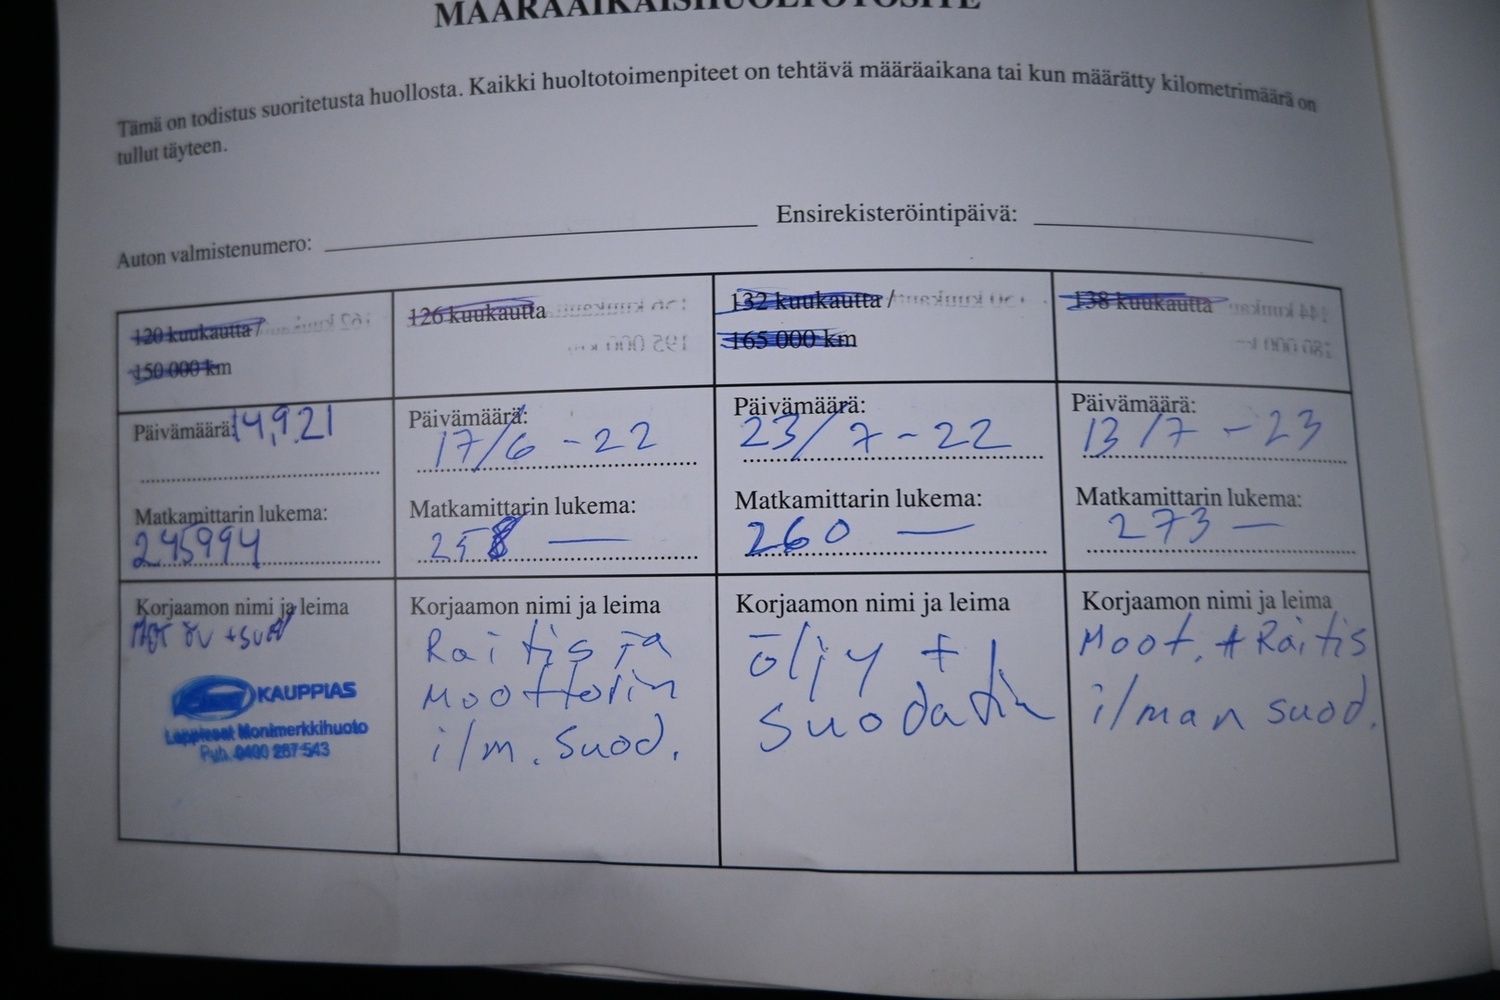 MÄÄRÄAIKAISHUOLTOTOSITE
Tämä on todistus suoritetusta huollosta. Kaikki huoltotoimenpiteet on tehtävä määräaikana tai kun määrätty kilometrimäärä on
tullut täyteen.
Auton valmistenumero:
Ensirekisteröintipäivä:
120 kuukautta /
150 000 km
Päivämäärä:
14,9,21
Matkamittarin lukema:
245994
Korjaamon nimi ja leima
+suod
KAUPPIAS
Lappiset Monimerkkihuolto
Puh. 0400 267 543
126 kuukautta
Päivämäärä:
17/6 - 22
Matkamittarin lukema:
258 —
Korjaamon nimi ja leima
Raitis ja
Moottorin
ilm. suod.
132 kuukautta /
165 000 km
Päivämäärä:
23/7 - 22
Matkamittarin lukema:
260 —
Korjaamon nimi ja leima
öljy +
suodatin
138 kuukautta
Päivämäärä:
13/7 - 23
Matkamittarin lukema:
273 —
Korjaamon nimi ja leima
Moot. + Raitis
ilman suod.